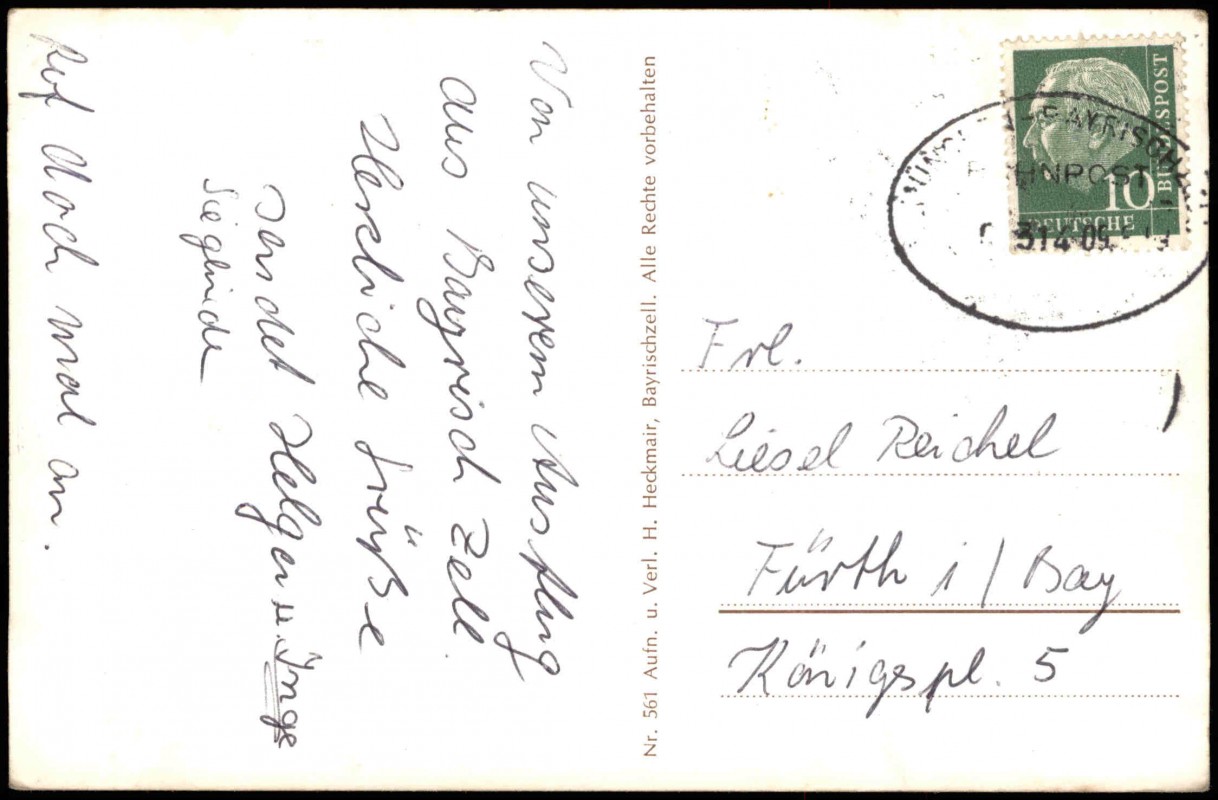 Von unserem Ausflug
aus Bayrisch Zell
Herzliche Grüße
sendet Helga u. Inge
Sieglinde
Ruf doch mal an.
Nr. 561 Aufn. u. Verl. H. Heckmair, Bayrischzell. Alle Rechte vorbehalten
DEUTSCHE
BUNDESPOST
10
BAYRISCH
BAHNPOST
Frl.
Liesel Reichel
Fürth i/Bay
Königspl. 5